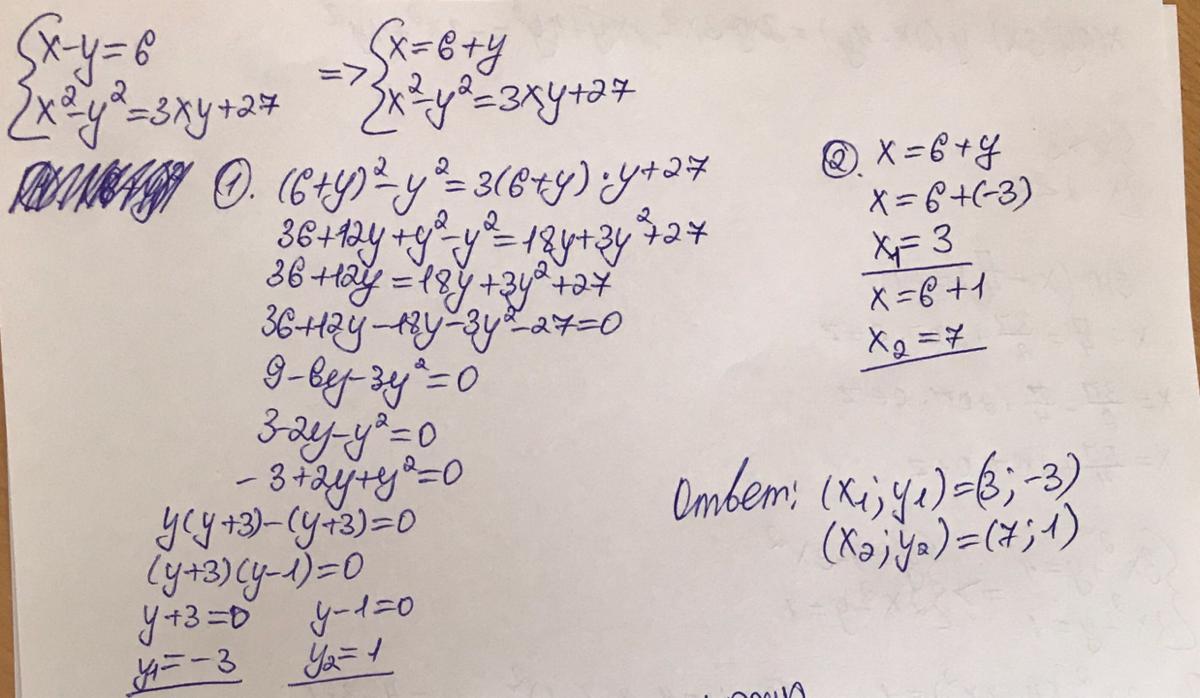 {x-y=6 => {x=6+y
{x²-y²=3xy+27 {x²-y²=3xy+27
①. (6+y)²-y²=3(6+y)·y+27
36+12y+y²-y²=18y+3y²+27
36+12y=18y+3y²+27
36+12y-18y-3y²-27=0
9-6y-3y²=0
3-2y-y²=0
-3+2y+y²=0
y(y+3)-(y+3)=0
(y+3)(y-1)=0
y+3=0 y-1=0
y₁=-3 y₂=1
②. x=6+y
x=6+(-3)
x₁=3
x=6+1
x₂=7
Ответ: (x₁;y₁)=(3;-3)
(x₂;y₂)=(7;1)